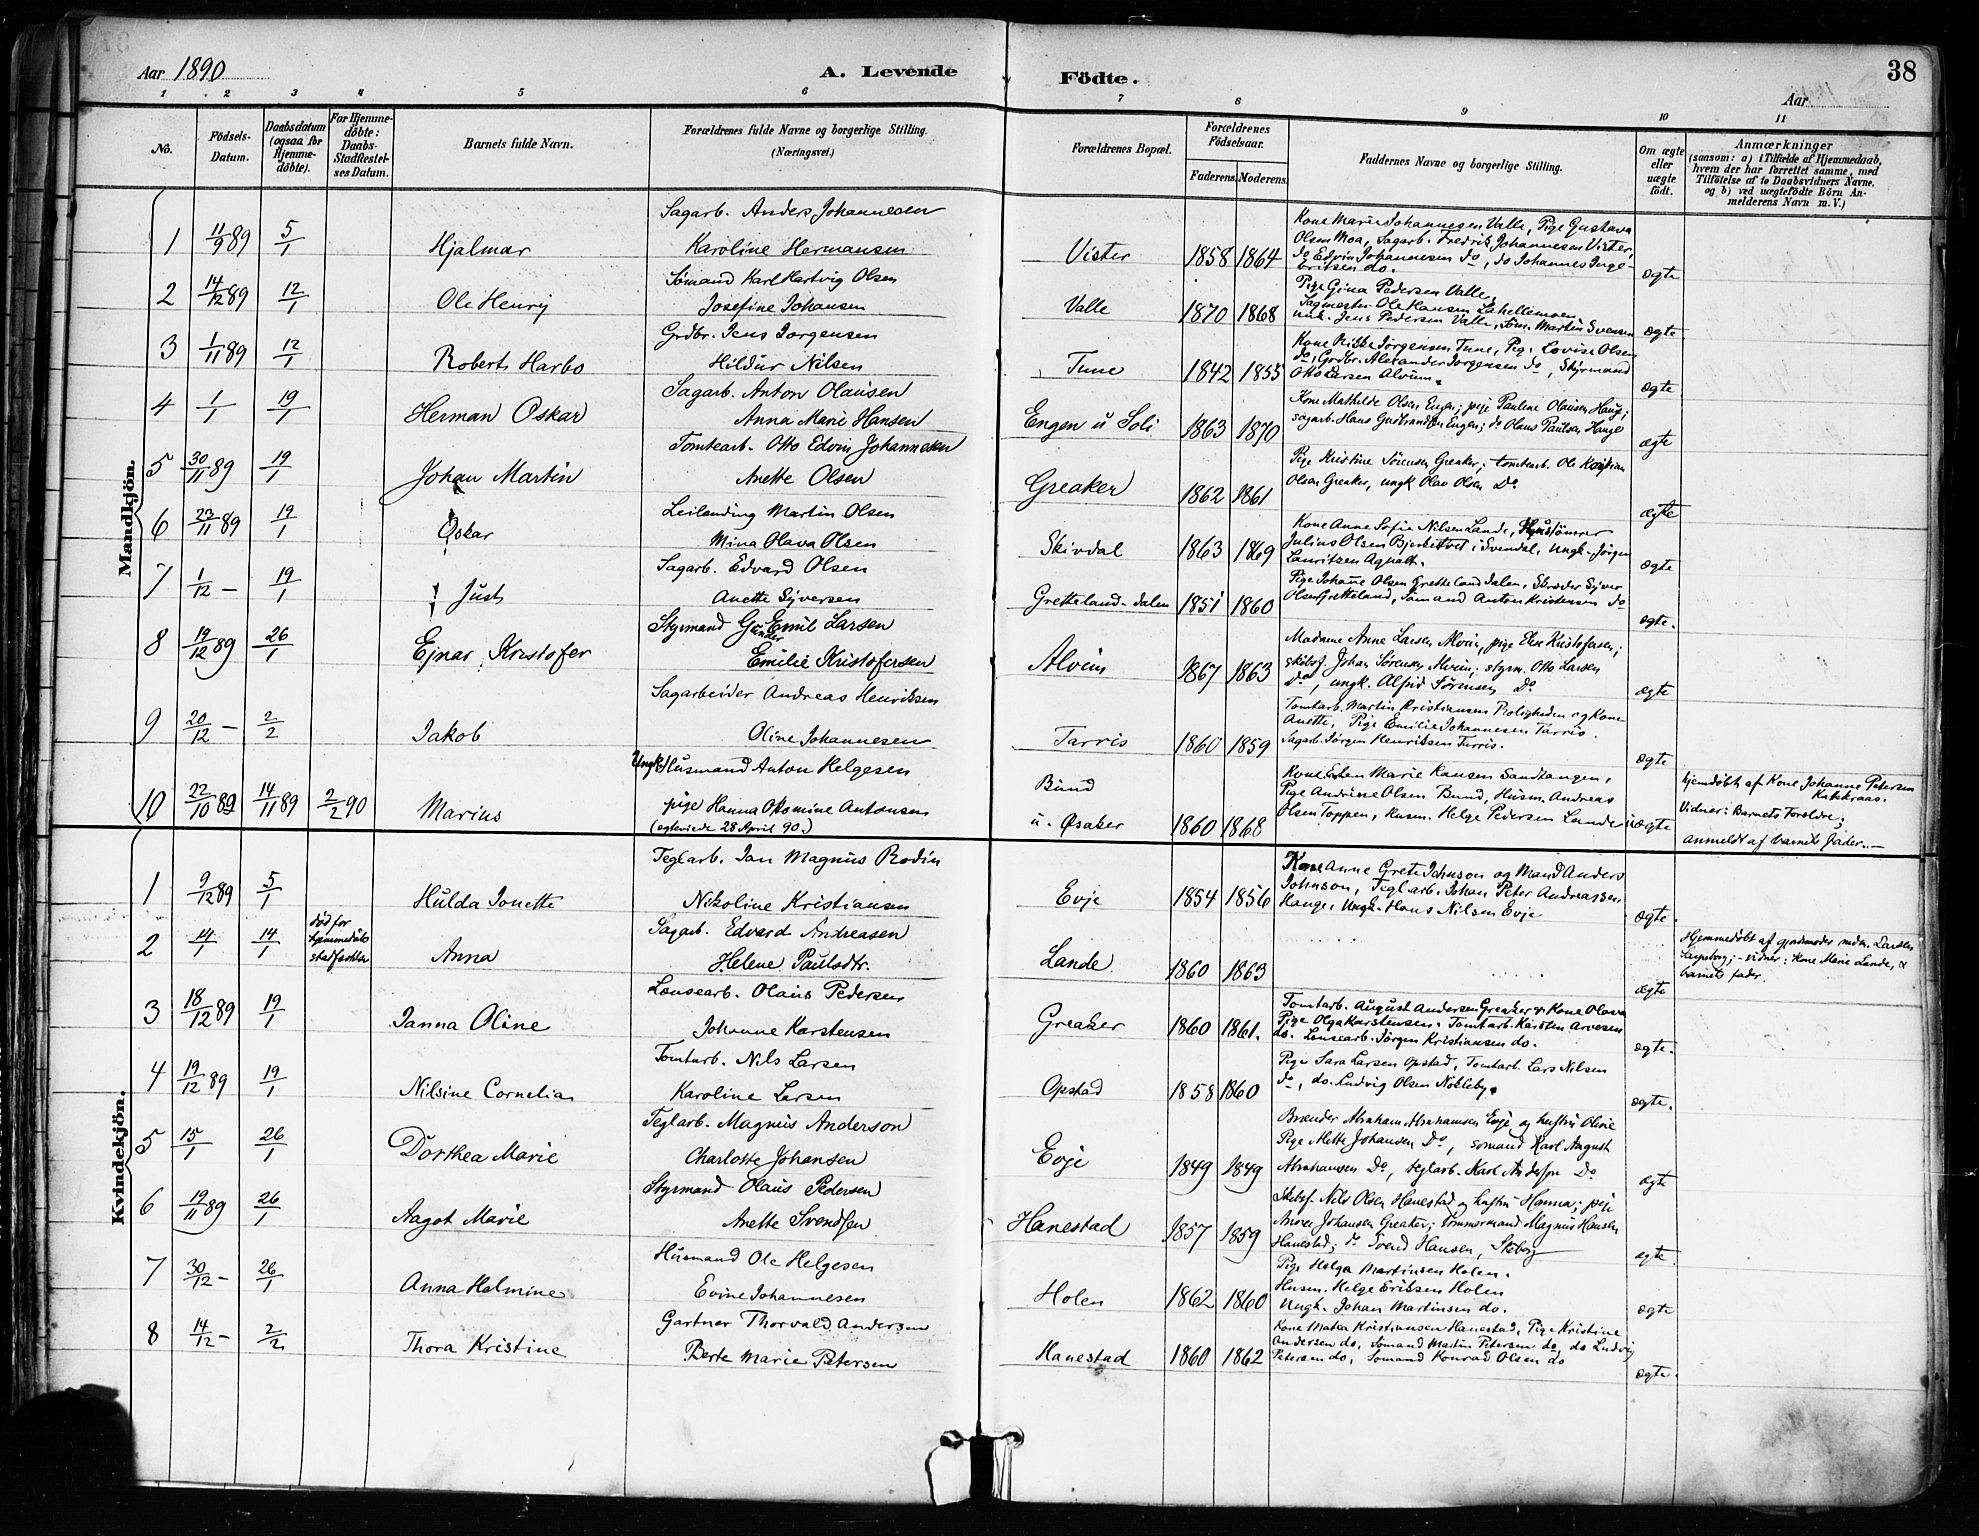 Aar 1890
A. Levende Födte.
38
Aar
1 2 3 4 5 6 7 8 9 10 11
No.
Födsels-Datum.
Daabsdatum (ogsaa for Hjemme-döbte).
For Hjemme-döbte: Daabs-Stadfæstel-ses Datum.
Barnets fulde Navn.
Forældrenes fulde Navne og borgerlige Stilling. (Næringsvei.)
Forældrenes Bopæl.
Forældrenes Födselsaar.
Faderens. Moderens.
Faddernes Navne og borgerlige Stilling.
Om ægte eller uægte födt.
Anmærkninger
(saasom: a) i Tilfælde af Hjemmedaab, hvem der har forrettet samme, med Tilföielse af to Daabsvidners Navne, og b) ved uægtefödte Börn An-melderens Navn m. V.)
Mandkjön.
1 11/9 89 5/1 Hjalmar
Sagarb. Anders Johannesen
Karoline Hermansen
Vister 1858 1864
Kone Marie Johannesen Valle, Pige Gustava
Olsen Moa, Sagarb. Fredrik Johannesen Vister,
do Edvin Johannesen do, do Johannes Inge-
britsen do.
ægte
2 14/12 89 12/1 Ole Henrij
Sømand Karl Hartvig Olsen
Josefine Johansen
Valle 1870 1868
Pige Gina Pedersen Valle,
Sagmester Ole Hansen
ungk. Jens Pedersen Valle, Søm. Martin Svensen
ægte
3 1/11 89 12/1 Robert Harbo
Grdbr. Jens Jørgensen
Hildur Nilsen
Tune 1842 1855
Kone Rikke Jørgensen Tune, Pige Lovise Olsen
do, Grdbr. Alexander Jørgensen do, Styrmand
Otto Larsen Alvim.
ægte
4 1/1 19/1 Herman Oskar
Sagarb. Anton Olausen
Anna Marie Hansen
Engen u Soli 1863 1870
Kone Mathilde Olsen Engen; pige Pauline Olausen Hauge;
sagarb. Hans Gulbrandsen Engen; do Olaus Paulsen Hauge
ægte
5 30/11 89 19/1 Johan Martin
Tomtearb. Otto Edvin Johannesen
Anette Olsen
Greaker 1862 1861
Pige Kristine Sørensen Greaker; tomtarb. Ole Kristian
Olsen Greaker, ungk Olav Olsen Do
ægte
6 23/11 89 19/1 Oskar
Leilending Martin Olsen
Mina Olava Olsen
Skivdal 1863 1869
Kone Anne Sofie Nilsen Lande,
Julius Olsen i Svendal, Ungk. Jørgen
Lauritsen Agnalt.
ægte
7 1/12 — 19/1 Just
Sagarb. Edvard Olsen
Anette Syversen
Gretteland-dalen 1851 1860
Pige Johanne Olsen Gretteland dalen, Skræder Syver
Olsen Gretteland, Sømand Anton Kristensen do
ægte.
8 19/12 89 26/1 Ejnar Kristofer
Styrmand Gunder Emil Larsen
Emilie Kristofersen
Alvim 1867 1863
Madame Anne Larsen Alvim, pige Elen Kristofersen;
skibsf. Johan Sørensen Alvim; styrm. Otto Larsen
Do, ungk. Alfred Sørensen Do
ægte
9 20/12 — 2/2 Jakob
Sagarbeider Andreas Henriksen
Oline Johannesen
Tarris 1860 1859
Tomtarb. Martin Kristiansen Roligheden og Kone
Anette, Pige Emilie Johannesen Tarris.
Sagarb. Jørgen Henriksen Tarris.
ægte
10 22/10 89 14/11 89 2/2 90 Marius
Ungk. Husmand Anton Helgesen
pige Hanna Ottomine Antonsen
(ægteviede 28 April 90.)
Bund
u. Øsaker 1860 1868
Kone Elen Marie Hansen Sandtangen,
Pige Andrine Olsen Bund, Husm. Andreas
Olsen Toppen, Husm. Helge Pedersen Lande
uægte
hjemdøbt af Kone Johanne Petersen
Vidner: Barnets Forældre;
anmeldt af barnets fader.—
Kvindekjön.
1 9/12 89 5/1 Hulda Jonette
Teglarb. Jan Magnus Rodin
Nikoline Kristiansen
Evje 1854 1856
Kone Anne Grete Johnson og Mand Anders
Johnson, Teglarb. Johan Peter Andreassen
Hauge, Ungk. Hans Nilsen Evje
ægte.
2 14/1 14/1
død før
hjemmedaabs
stadfæstelse
Anna
Sagarb. Edvard Andreasen
Helene Paulsdtr.
Lande 1860 1863
ægte
Hjemmedøbt af gjordmoder mdm. Larsen
Sarpsborg; vidner: Kone Marie Lande, &
barnets fader.
3 18/12 89 19/1 Janna Oline
Lænsearb. Olaus Pedersen
Johanne Karstensen
Greaker 1860 1861.
Tomtarb. August Andersen Greaker & Kone Olava
Pige Olga Karstensen. Tomtarb. Karsten Arvesen
do. Lænsearb. Jørgen Kristiansen do.
ægte.
4 19/12 89 19/1 Nilsine Cornelia
Tomtarb. Nils Larsen
Karoline Larsen
Opstad 1858 1860
Pige Sara Larsen Opstad, Tomtarb. Lars Nilsen
do, do. Ludvig Olsen Nøkleby.
ægte.
5 15/1 26/1 Dorthea Marie
Teglarb. Magnus Anderson
Charlotte Johansen
Evje 1849 1849
Brænder Abraham Abrahamsen Evje og hustru Oline
Pige Mette Johansen Do, sømand Karl August
Abrahamsen Do, teglarb. Karl Anderson Do
ægte
6 19/11 89 26/1 Aagot Marie
Styrmand Olaus Pedersen
Anette Svendsen
Hanestad 1857 1859
Skibsf. Nils Olsen Hanestad og hustru Hanna; pige
Anna Johansen Greaker; Tømmermand Magnus Hansen
Hanestad; do Svend Hansen,
ægte.
7 30/12 — 26/1 Anna Helmine
Husmand Ole Helgesen
Evine Johannesen
Holen 1862 1860
Pige Helga Martinsen Holen.
Husm. Helge Eriksen Holen
Ungk. Johan Martinsen do.
ægte
8 14/12 — 2/2 Thora Kristine
Gartner Thorvald Andersen
Berte Marie Petersen
Hanestad 1860 1862
Kone Matea Kristiansen Hanestad, Pige Kristine
Andersen do, Sømand Martin Petersen do, do Ludvig
Petersen do, Sømand Konrad Olsen do
ægte.